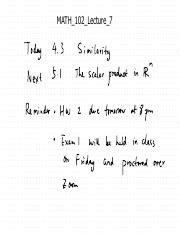 MATH_102_Lecture_7
Today 4.3 Similarity
Next 5.1 The scalar product in ℝⁿ
Reminder: • HW 2 due tomorrow at 8 pm
• Exam 1 will be held in class
on Friday and proctored over
Zoom